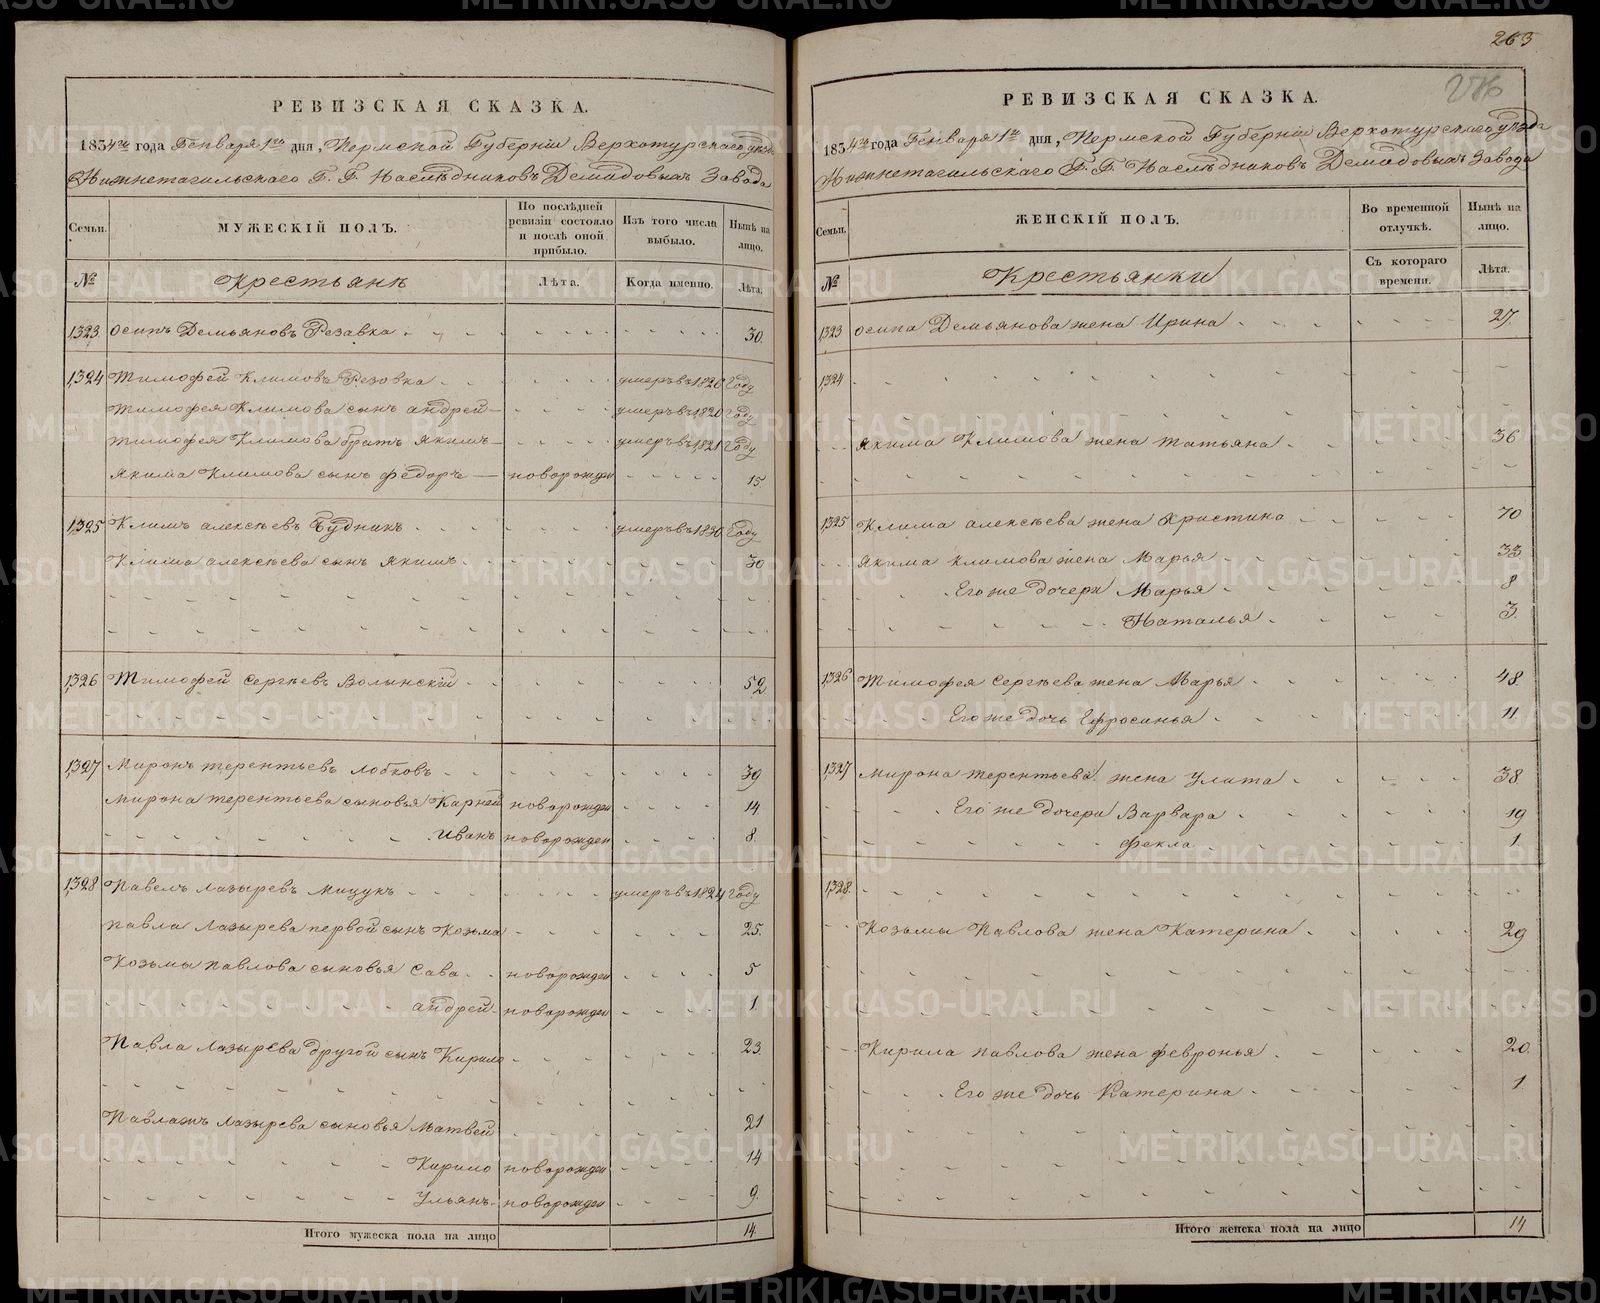 РЕВИЗСКАЯ СКАЗКА.
1834го года Генваря 1го дня, Пермской Губерніи Верхотурскаго уезда
Нижнетагильскаго Г. Г. Наслѣдниковъ Демидовыхъ Завода
Семьи. МУЖЕСКІЙ ПОЛЪ. По послѣдней ревизіи состояло и послѣ оной прибыло. Изъ того числа выбыло. Нынѣ на лицо.
№ Крестьянъ Лѣта. Когда именно. Лѣта.
1323 Осипъ Демьяновъ Резавка 30.
1324 Тимофей Климовъ Резовка умеръ въ 1820 Году
Тимофея Климова сынъ андрей умеръ въ 1820 Году
Тимофея Климова братъ якимъ умеръ въ 1821 Году
Якима Климова сынъ федоръ новорожден 15
1325 Климъ алексѣевъ Будникъ умеръ въ 1830 Году
Клима алексѣева сынъ якимъ 30
1326 Тимофей Сергѣевъ Волынскій 52
1327 Миронъ терентьевъ лобковъ 39
Мирона терентьева сыновья Карней новорожден 14
Иванъ новорожден 8
1328 Павелъ лазыревъ мицукъ умеръ въ 1824 Году
павла лазырева первой сынъ Козьма 25.
Козьмы павлова сыновья Сава новорожден 5
андрей новорожден 1
Павла лазырева другой сынъ Кирило 23.
Павлажъ лазырева сыновья Матвей 21
Кирило новорожден 14
Ульянъ новорожден 9.
Итого мужеска пола на лицо 14
263
РЕВИЗСКАЯ СКАЗКА.
1834го года Генваря 1го дня, Пермской Губерніи Верхотурскаго уезда
Нижнетагильскаго Г. Г. Наслѣдниковъ Демидовыхъ Завода
Семьи. ЖЕНСКІЙ ПОЛЪ. Во временной отлучкѣ. Нынѣ на лицо.
№ Крестьянки Съ котораго времени. Лѣта.
1323 Осипа Демьянова жена Ирина 27.
1324
якима Климова жена татьяна 36
1325 Клима алексѣева жена Христина 70
якима климова жена Марья 33
Его же дочери Марья 8
Наталья 3.
1326 Тимофея Сергѣева жена Марья 48
Его же дочь Ефросинья 11
1327 мирона терентьева жена улита 38
Его же дочери Варвара 19
фекла 1
1328
Козьмы Павлова жена Катерина 29
Кирила павлова жена февронья 20.
Его же дочь Катерина 1
Итого женска пола на лицо 14
METRIKI.GASO-URAL.RU